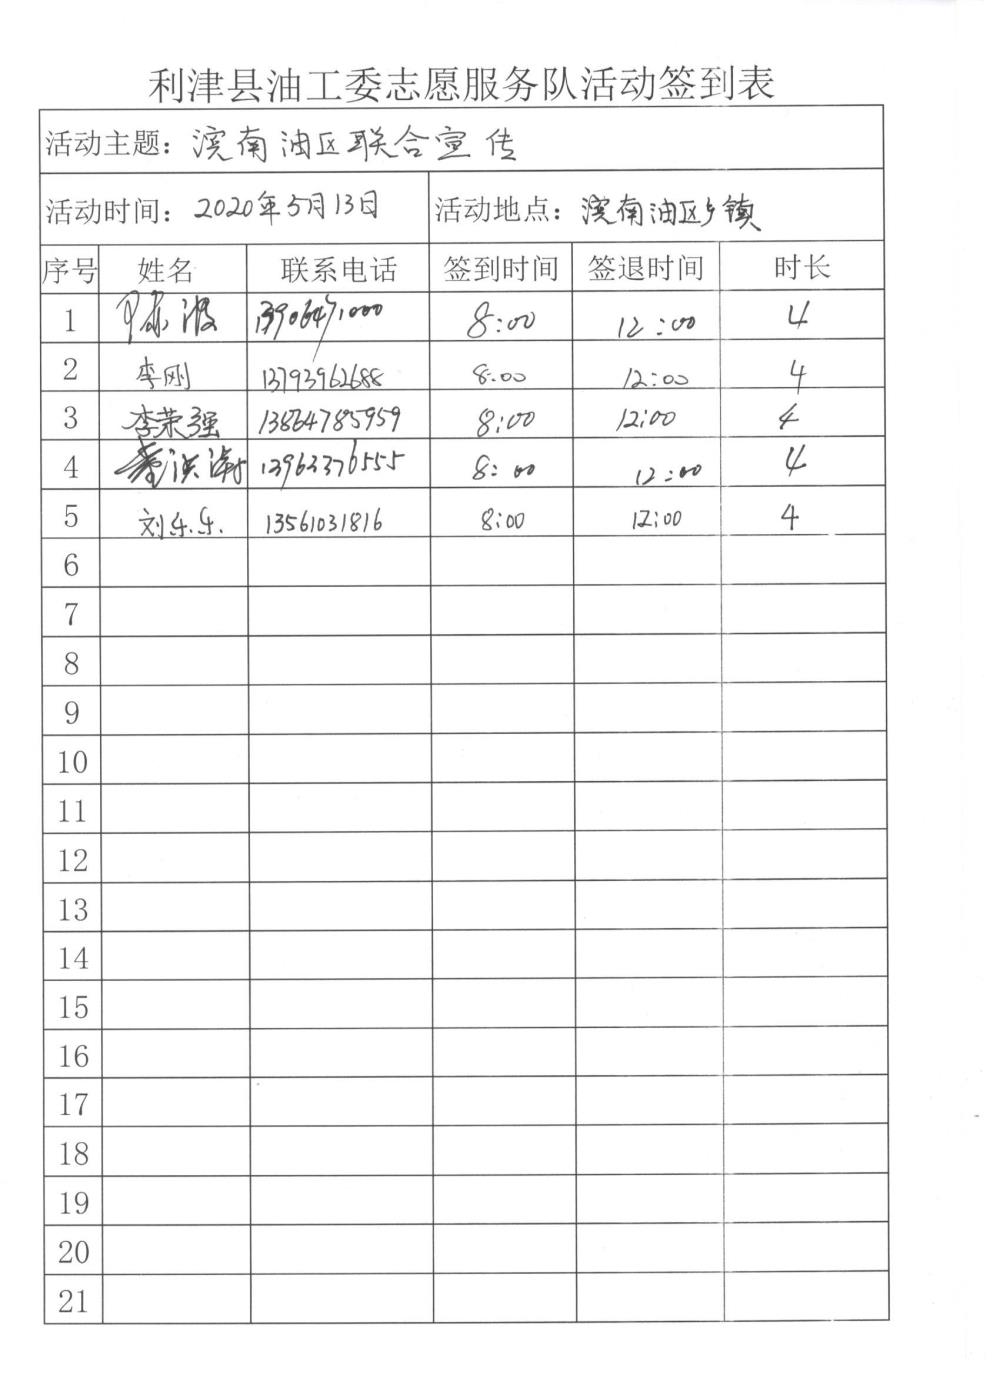 利津县油工委志愿服务队活动签到表
活动主题：滨南油区联合宣传
活动时间：2020年5月13日 活动地点：滨南油区乡镇
序号 姓名 联系电话 签到时间 签退时间 时长
1 波 13906471000 8:00 12:00 4
2 李刚 13793962688 8:00 12:00 4
3 李荣强 13864785959 8:00 12:00 4
4 洪 13963376555 8:00 12:00 4
5 刘乐乐. 13561031816 8:00 12:00 4
6
7
8
9
10
11
12
13
14
15
16
17
18
19
20
21